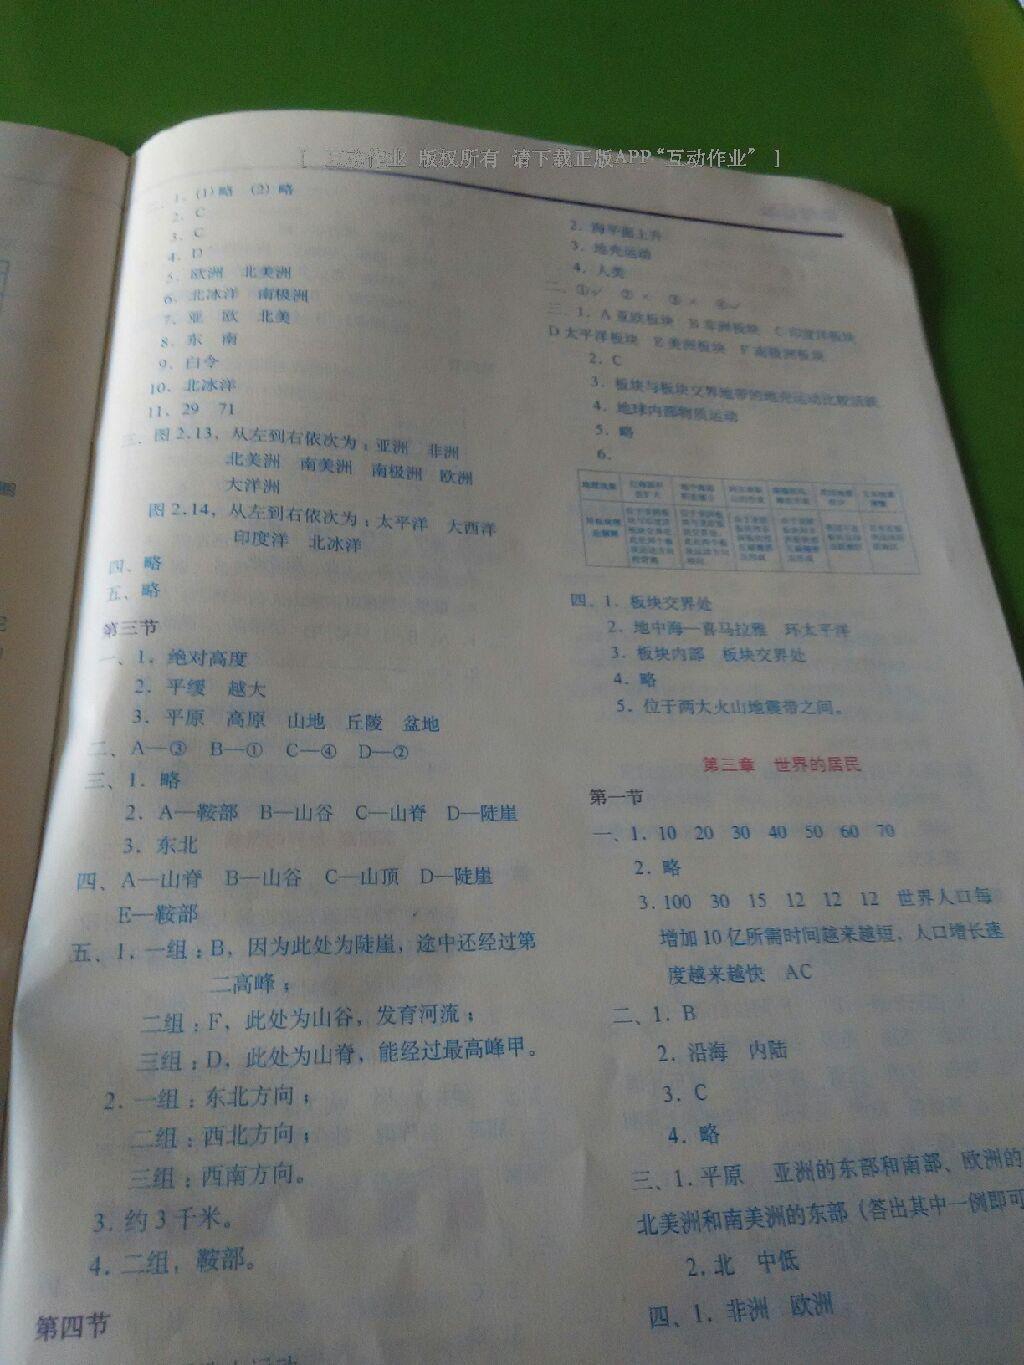 [ 互动作业 版权所有 请下载正版APP“互动作业” ]
二、1. (1)略 (2)略
2. C
3. C
4. D
5. 欧洲 北美洲
6. 北冰洋 南极洲
7. 亚 欧 北美
8. 东 南
9. 白令
10. 北冰洋
11. 29 71
三、图2.13，从左到右依次为：亚洲 非洲
北美洲 南美洲 南极洲 欧洲
大洋洲
图2.14，从左到右依次为：太平洋 大西洋
印度洋 北冰洋
四、略
五、略
第三节
一、1. 绝对高度
2. 平缓 越大
3. 平原 高原 山地 丘陵 盆地
二、A—③ B—① C—④ D—②
三、1. 略
2. A—鞍部 B—山谷 C—山脊 D—陡崖
3. 东北
四、A—山脊 B—山谷 C—山顶 D—陡崖
E—鞍部
五、1. 一组：B，因为此处为陡崖，途中还经过第
二高峰；
二组：F，此处为山谷，发育河流；
三组：D，此处为山脊，能经过最高峰甲。
2. 一组：东北方向；
二组：西北方向；
三组：西南方向。
3. 约3千米。
4. 二组，鞍部。
第四节
2. 海平面上升
3. 地壳运动
4. 人类
二、①√ ②× ③× ④√
三、1. A 亚欧板块 B 非洲板块 C 印度洋板块
D 太平洋板块 E 美洲板块 F 南极洲板块
2. C
3. 板块与板块交界地带的地壳运动比较活跃
4. 地球内部物质运动
5. 略
6.
四、1. 板块交界处
2. 地中海—喜马拉雅 环太平洋
3. 板块内部 板块交界处
4. 略
5. 位于两大火山地震带之间。
第三章 世界的居民
第一节
一、1. 10 20 30 40 50 60 70
2. 略
3. 100 30 15 12 12 12 世界人口每
增加10亿所需时间越来越短，人口增长速
度越来越快 AC
二、1. B
2. 沿海 内陆
3. C
4. 略
三、1. 平原 亚洲的东部和南部、欧洲的
北美洲和南美洲的东部（答出其中一例即可
2. 北 中低
四、1. 非洲 欧洲